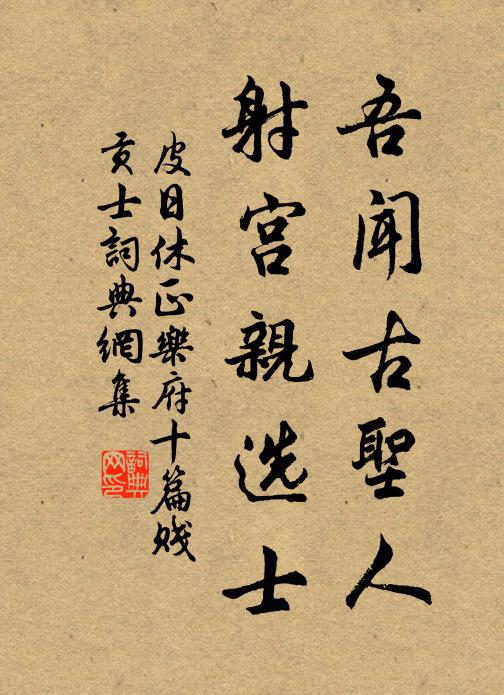 吾闻古聖人
射宫親选士
皮日休正樂府十篇贱
贡士詞典網集
詞典网印